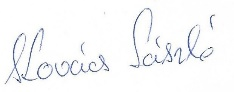 Kovács László